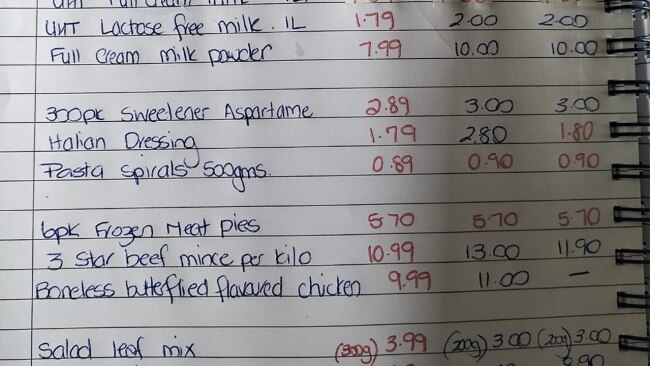 UHT Lactose free milk. 1L 1.79 2.00 2.00
Full Cream milk powder 7.99 10.00 10.00
300pk Sweetener Aspartame 2.89 3.00 3.00
Italian Dressing 1.79 2.80 1.80
Pasta Spirals 500gms. 0.89 0.90 0.90
6pk Frozen Meat pies 5.70 5.70 5.70
3 Star beef mince per kilo 10.99 13.00 11.90
Boneless butteflied flavoured chicken 9.99 11.00 —
Salad leaf mix (300g) 3.99 (200g) 3.00 (200g) 3.00